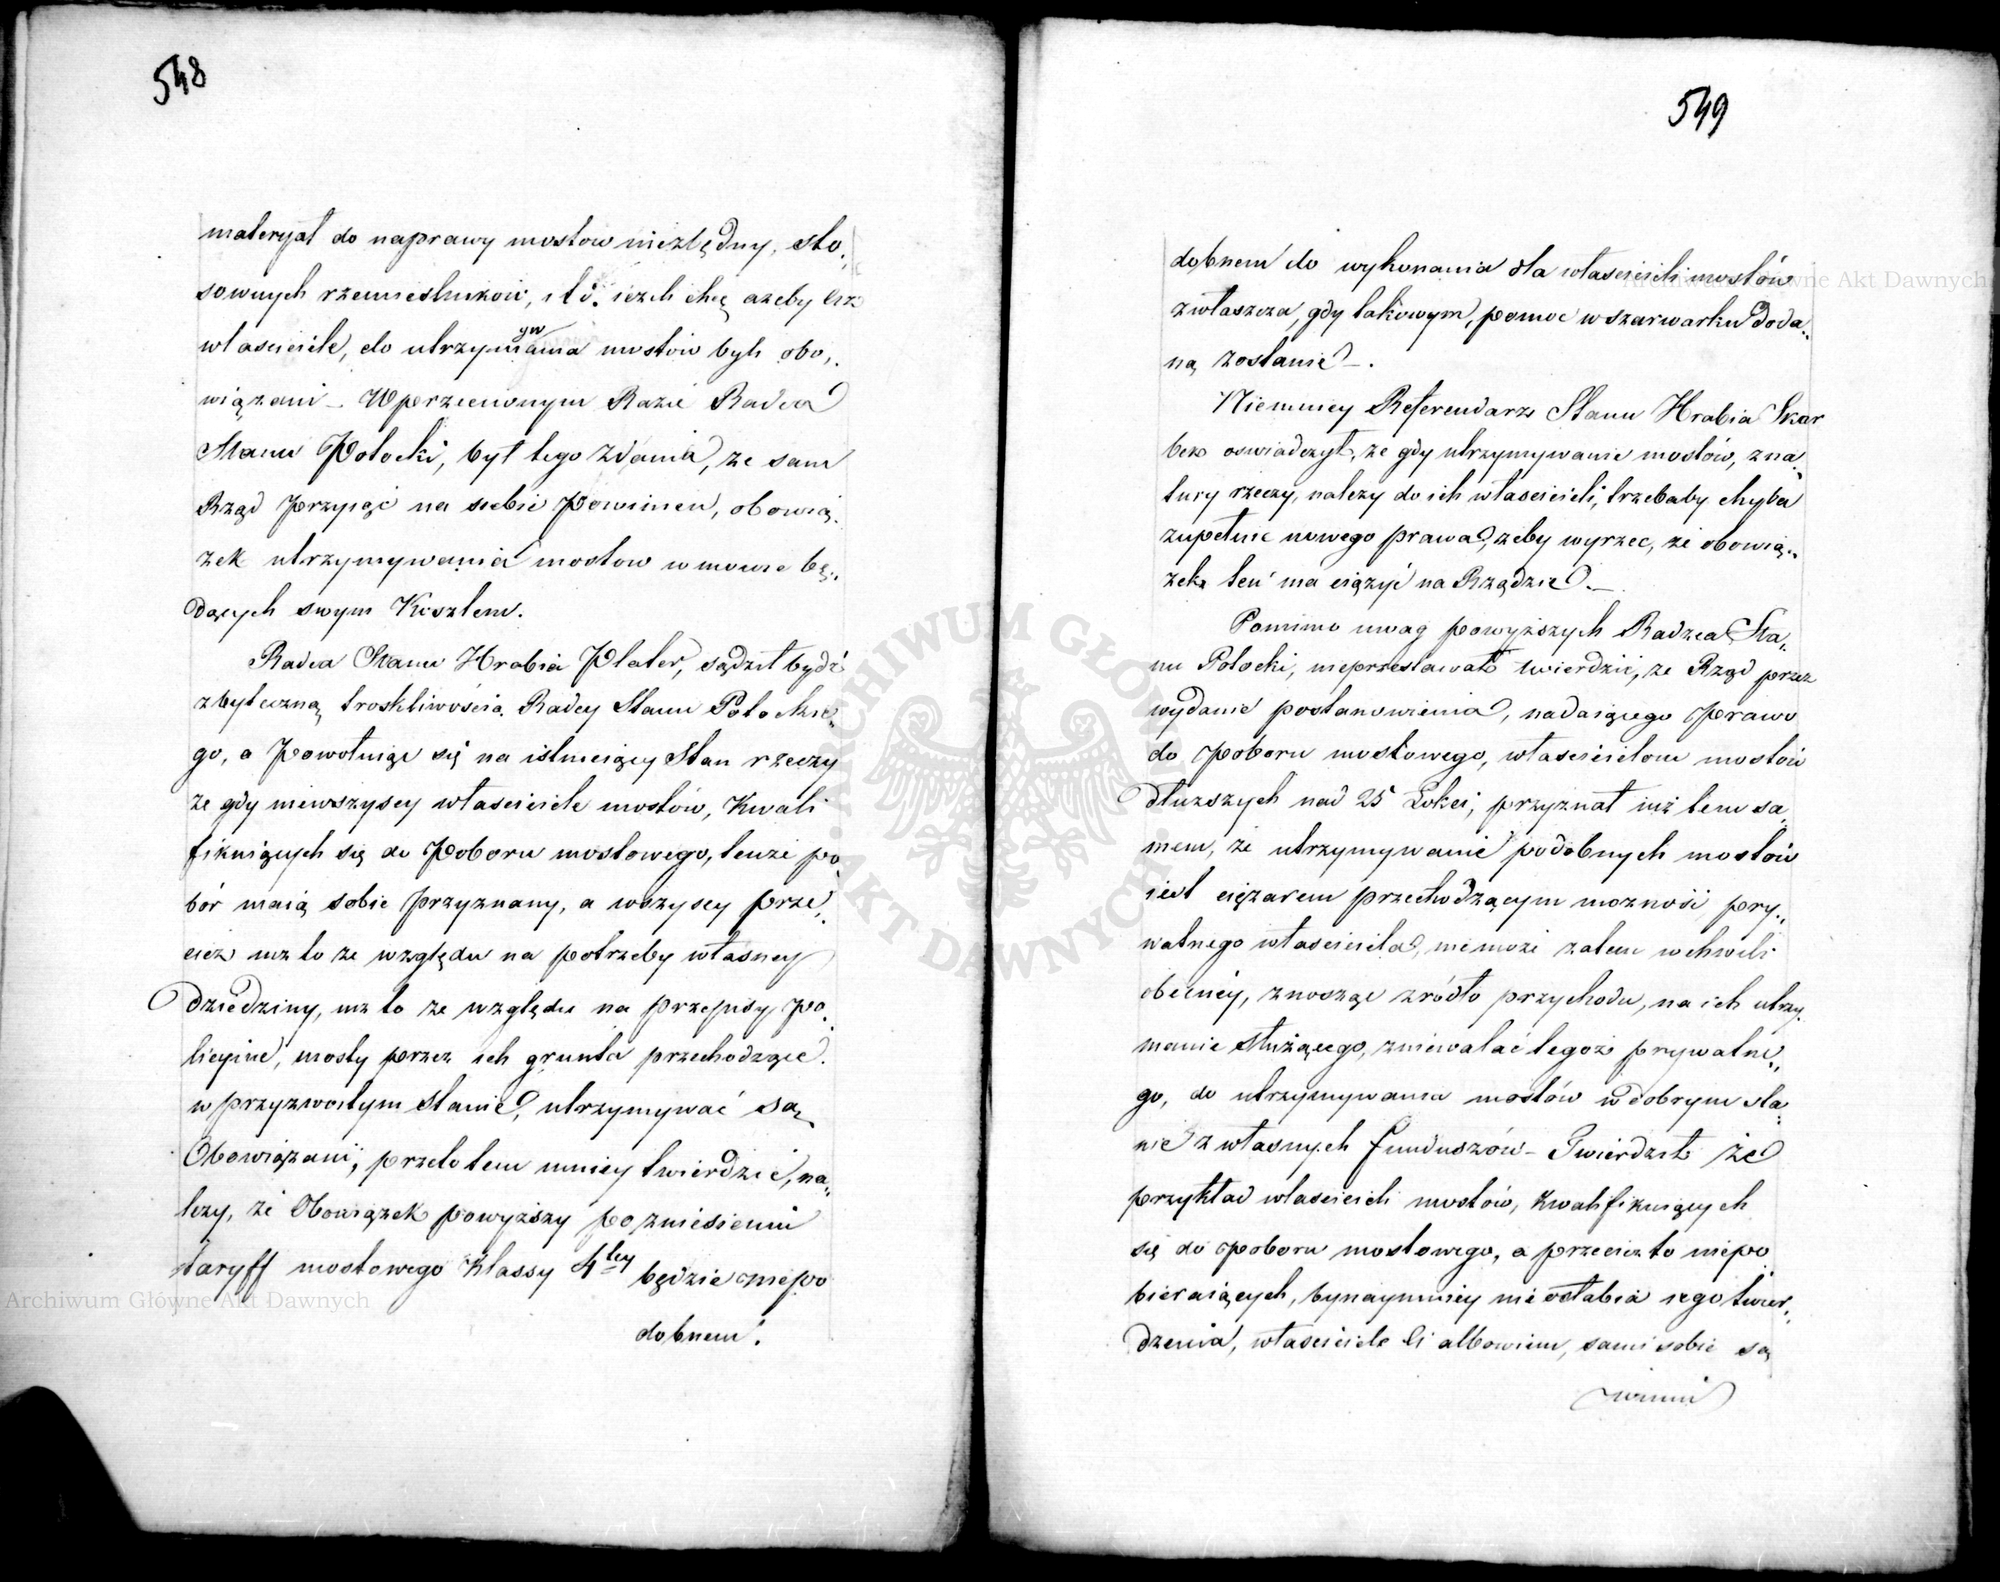 548
materyał do naprawy mostow niezbędny, sto„
sownych rzemieslnikow, i t d. iezeli chcą azeby ciz
własciciele, do utrzymywania mostów byli obo„
wiązani – W przeciwnym Razie Radca
Stanu Potocki, był tego zdania, ze sam
Rząd przyiąć na siebie powinien, obowią„
zek utrzymywania mostow w mowie bę„
dących swym Kosztem.
Radca Stanu Hrabia Plater, sądził bydź
zbyteczną troskliwością Radcy Stanu Potockie„
go, a powołuiąc się na istnieiący Stan rzeczy
ze gdy niewszyscy własciciele mostów, kwali
fikuiących się do Poboru mostowego, tenze po„
bór maią sobie przyznany, a wszyscy prze„
ciez iuz to ze względu na potrzeby własney
dziedziny, iuz to ze względu na przepisy po„
licyine, mosty przez ich grunta przechodzące
w przyzwoitym stanie, utrzymywać są
Obowiązani, przeto tem mniey twierdzić, na„
lezy, że Obowiązek powyższy po zniesieniu
taryff mostowego Klassy 4tey będzie niepo
dobnem.
549
dobnem do wykonania dla własicieli mostów
zwłaszcza, gdy takowym, pomoc w szarwarku doda„
ną zostanie –.
Niemniey Referendarz Stanu Hrabia Skar
bek oswiadczył, ze gdy utrzymywanie mostów, z na„
tury rzeczy, nalezy do ich własicieli, trzebaby chyba
zupełnie nowego prawa, zeby wyrzec, że obowią„
zek ten ma ciążyć na Rządzie. –
Pomimo uwag powyższych Radzca Sta„
nu Potocki, nieprzestawał twierdzić, ze Rząd przez
wydanie postanowienia, nadaiącego prawo
do poboru mostowego, własicielom mostów
dłuższych nad 25 Łokci, przyznał iuż tem sa„
mem, że utrzymywanie podobnych mostów
iest ciężarem przechodzącym mozność pry„
watnego własiciela, nie może zatem w chwili
obecney, znosząc zródło przychodu, na ich utrzy„
manie służącego, zniewalać tegoż prywatne„
go, do utrzymywania mostów w dobrym sta„
nie z własnych funduszów – Twierdził że
przykład własicieli mostów, kwalifikuiących
się do poboru mostowego, a przeciez to niepo
bieraiących, bynaymniey nie osłabia iego twier„
dzenia, własiciele ci albowiem, sami sobie są
winni
Archiwum Główne Akt Dawnych
Archiwum Główne Akt Dawnych
ARCHIWUM GŁÓWNE AKT DAWNYCH